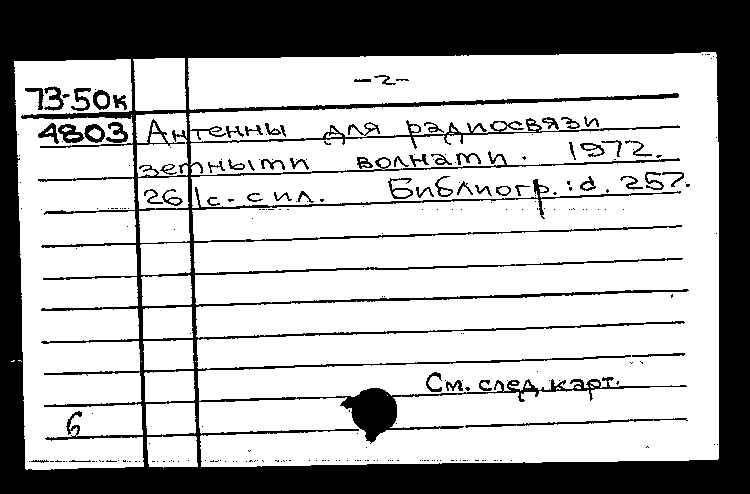 -2-
73-50к
4803 Антенны для радиосвязи
земными волнами. 1972.
261с. с ил. Библиогр.: с. 257.
См. след. карт.
6